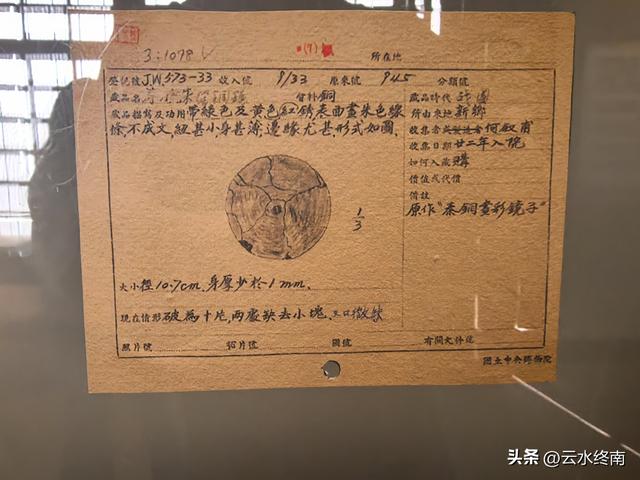 3:1078 (7) 所在地
登記號 JW.573-33 收入號 9/33 原來號 945 分類號
藏品名 朱 銅鏡 質料 銅 藏品時代 戰國
藏品描寫及功用 帶綠色及黃色紅銹,表面畫朱色線 所由來地 新鄉
條,不成文,紐甚小身甚薄,邊緣尤甚,形式如圖. 收集者 何敘甫
收集日期 廿二年入院
如何入藏 購
價值或代價
備註
原作"秦銅畫彩鏡子"
1/3
大小 徑10.7cm. 身厚少於1mm.
現在情形 破為十片,兩處缺去小塊.
照片號 招片號 圖號 有關文件號
國立中央博物院
头条 @云水终南